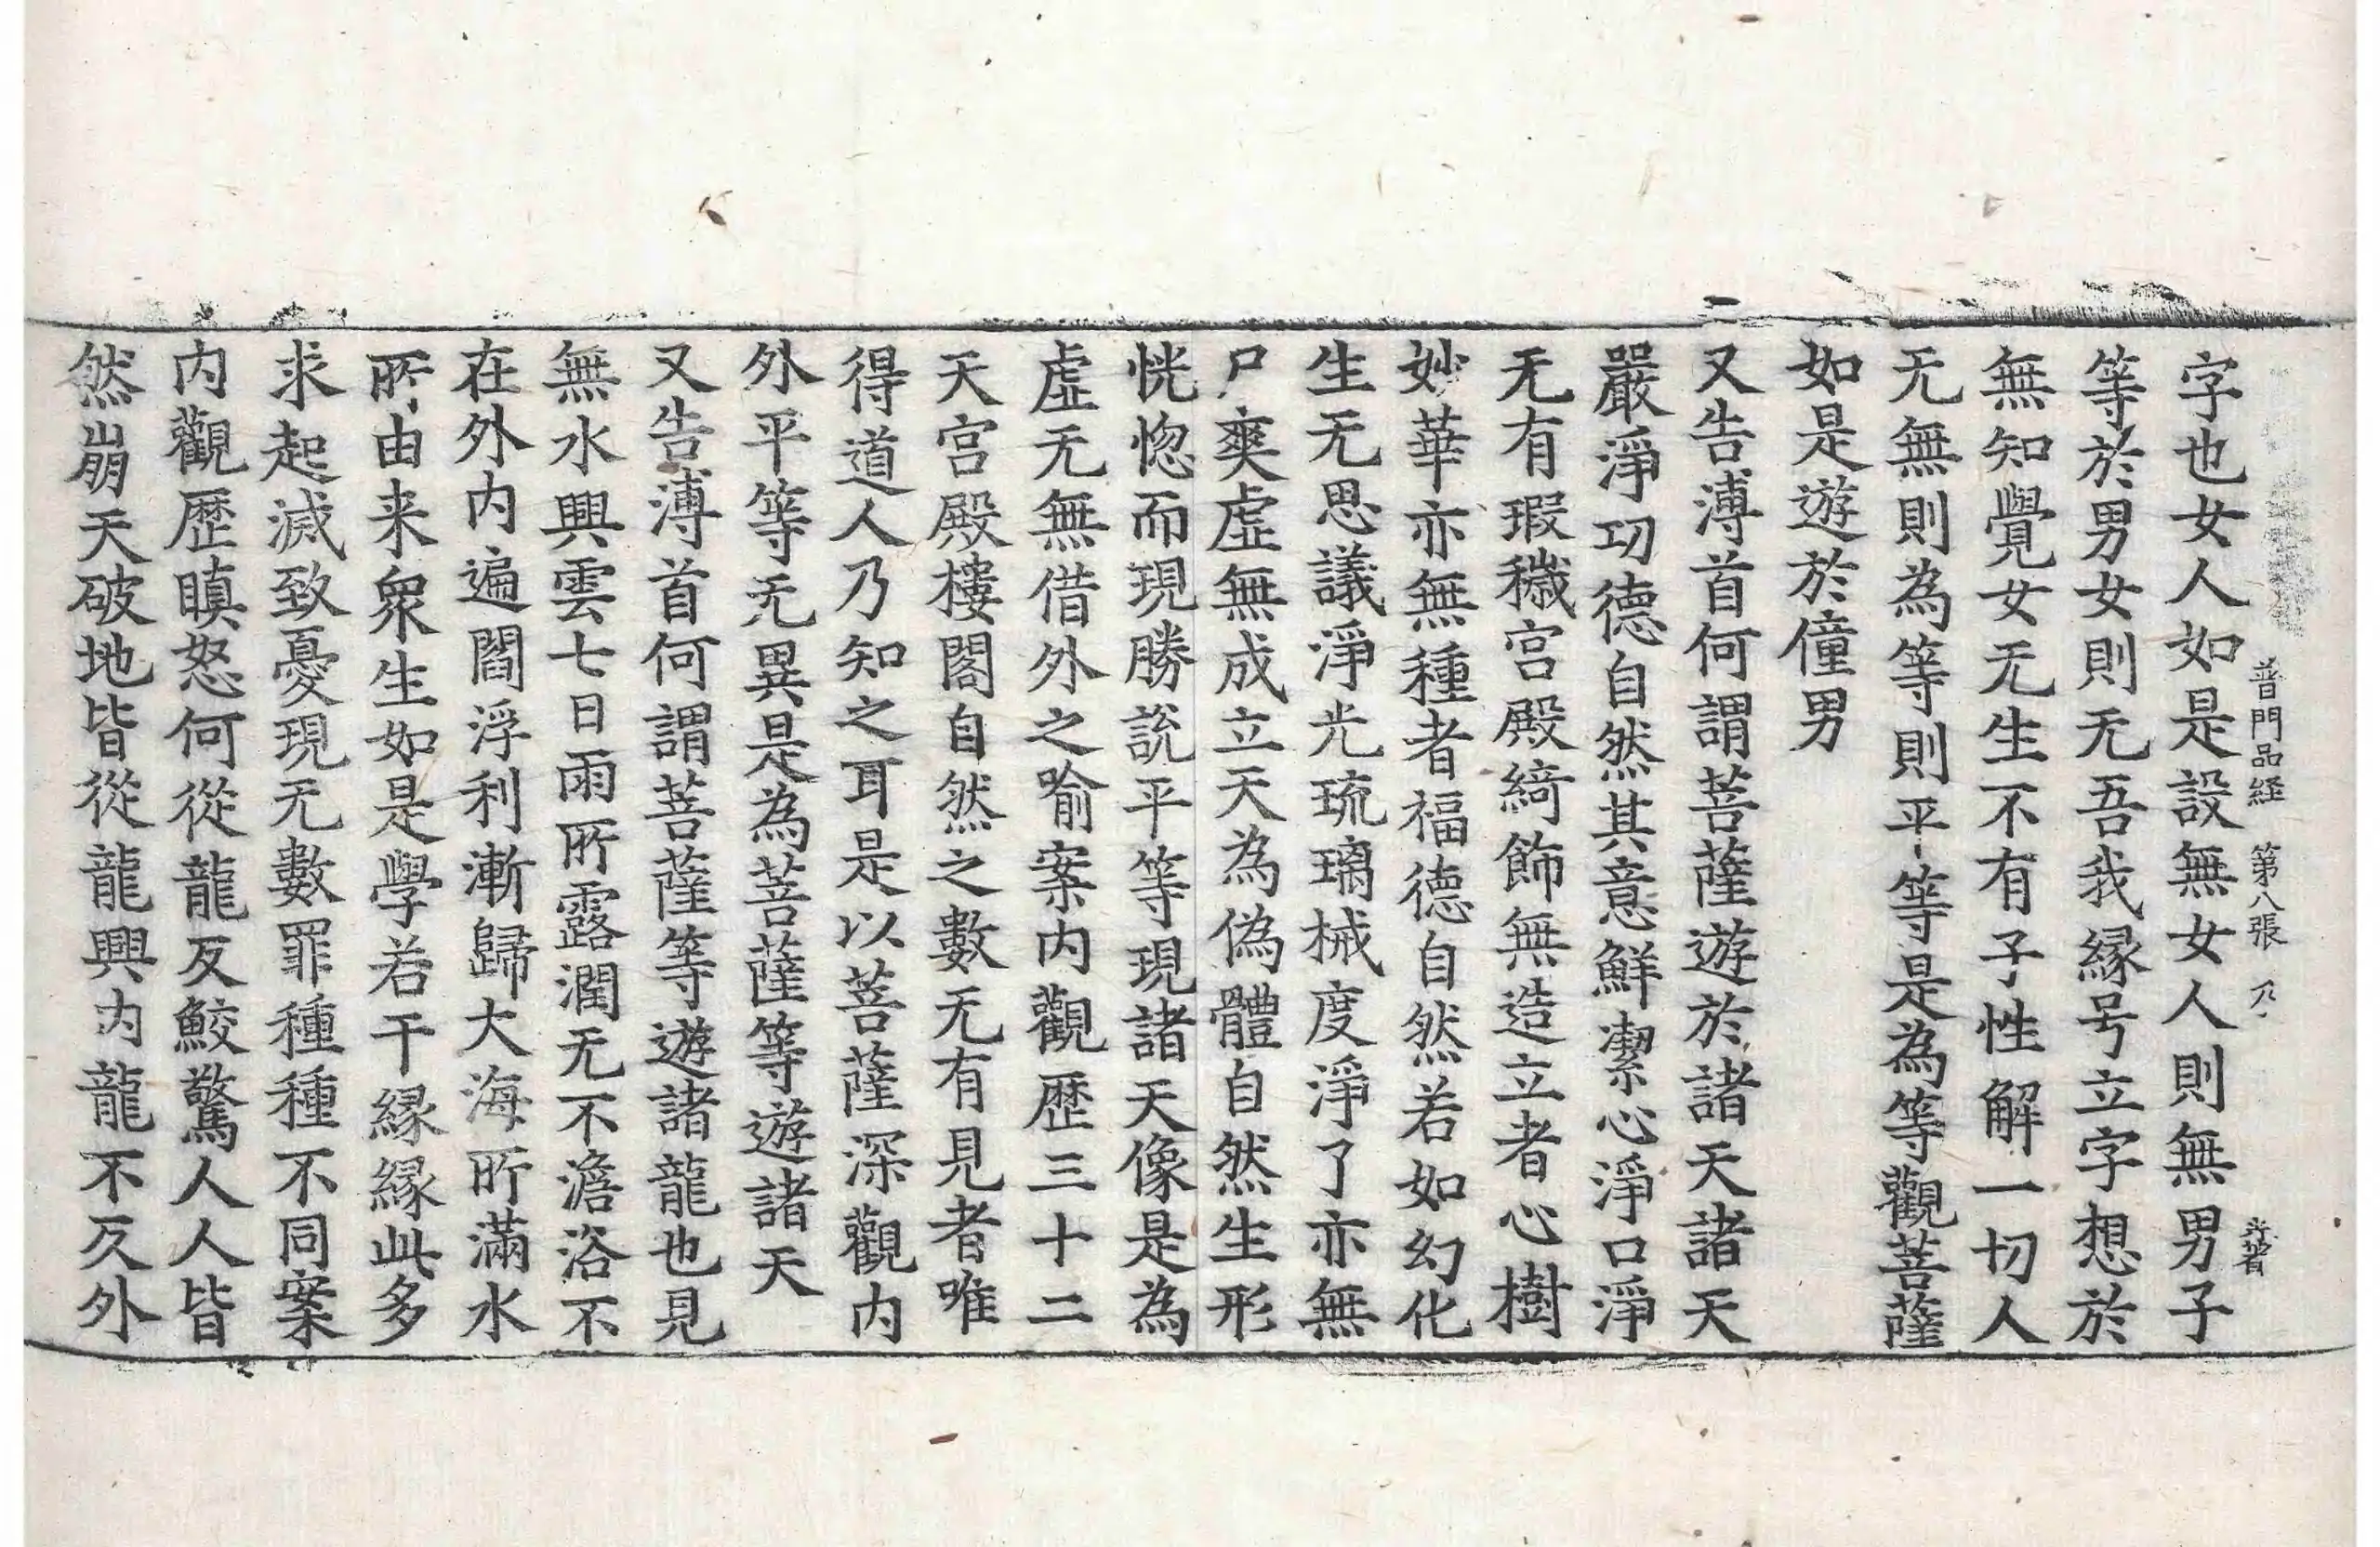 普門品経 第八張 乃
字也女人如是設無女人則無男子
等於男女則无吾我縁号立字想於
無知覺女无生不有子性解一切人
无無則為等則平等是為等觀菩薩
如是遊於僮男
又告溥首何謂菩薩遊於諸天諸天
嚴淨㓛德自然其意鮮潔心淨口淨
无有瑕穢宮殿綺飾無造立者心樹
妙華亦無種者福德自然若如幻化
生无思議淨光琉璃械度淨了亦無
尸爽虛無成立天為偽體自然生形
恍惚而現勝說平等現諸天像是為
虛无無借外之喻案内觀歷三十二
天宮殿樓閣自然之數无有見者唯
得道人乃知之耳是以菩薩深觀内
外平等无異是為菩薩等遊諸天
又告溥首何謂菩薩等遊諸龍也見
無水興雲七日雨所露潤无不澹洽不
在外内遍閻浮利漸歸大海所滿水
所由来衆生如是學若干縁縁此多
求起滅致憂現无數罪種種不同案
内觀歷瞋怒何從龍反鮫驚人人皆
然崩天破地皆從龍興内龍不反外